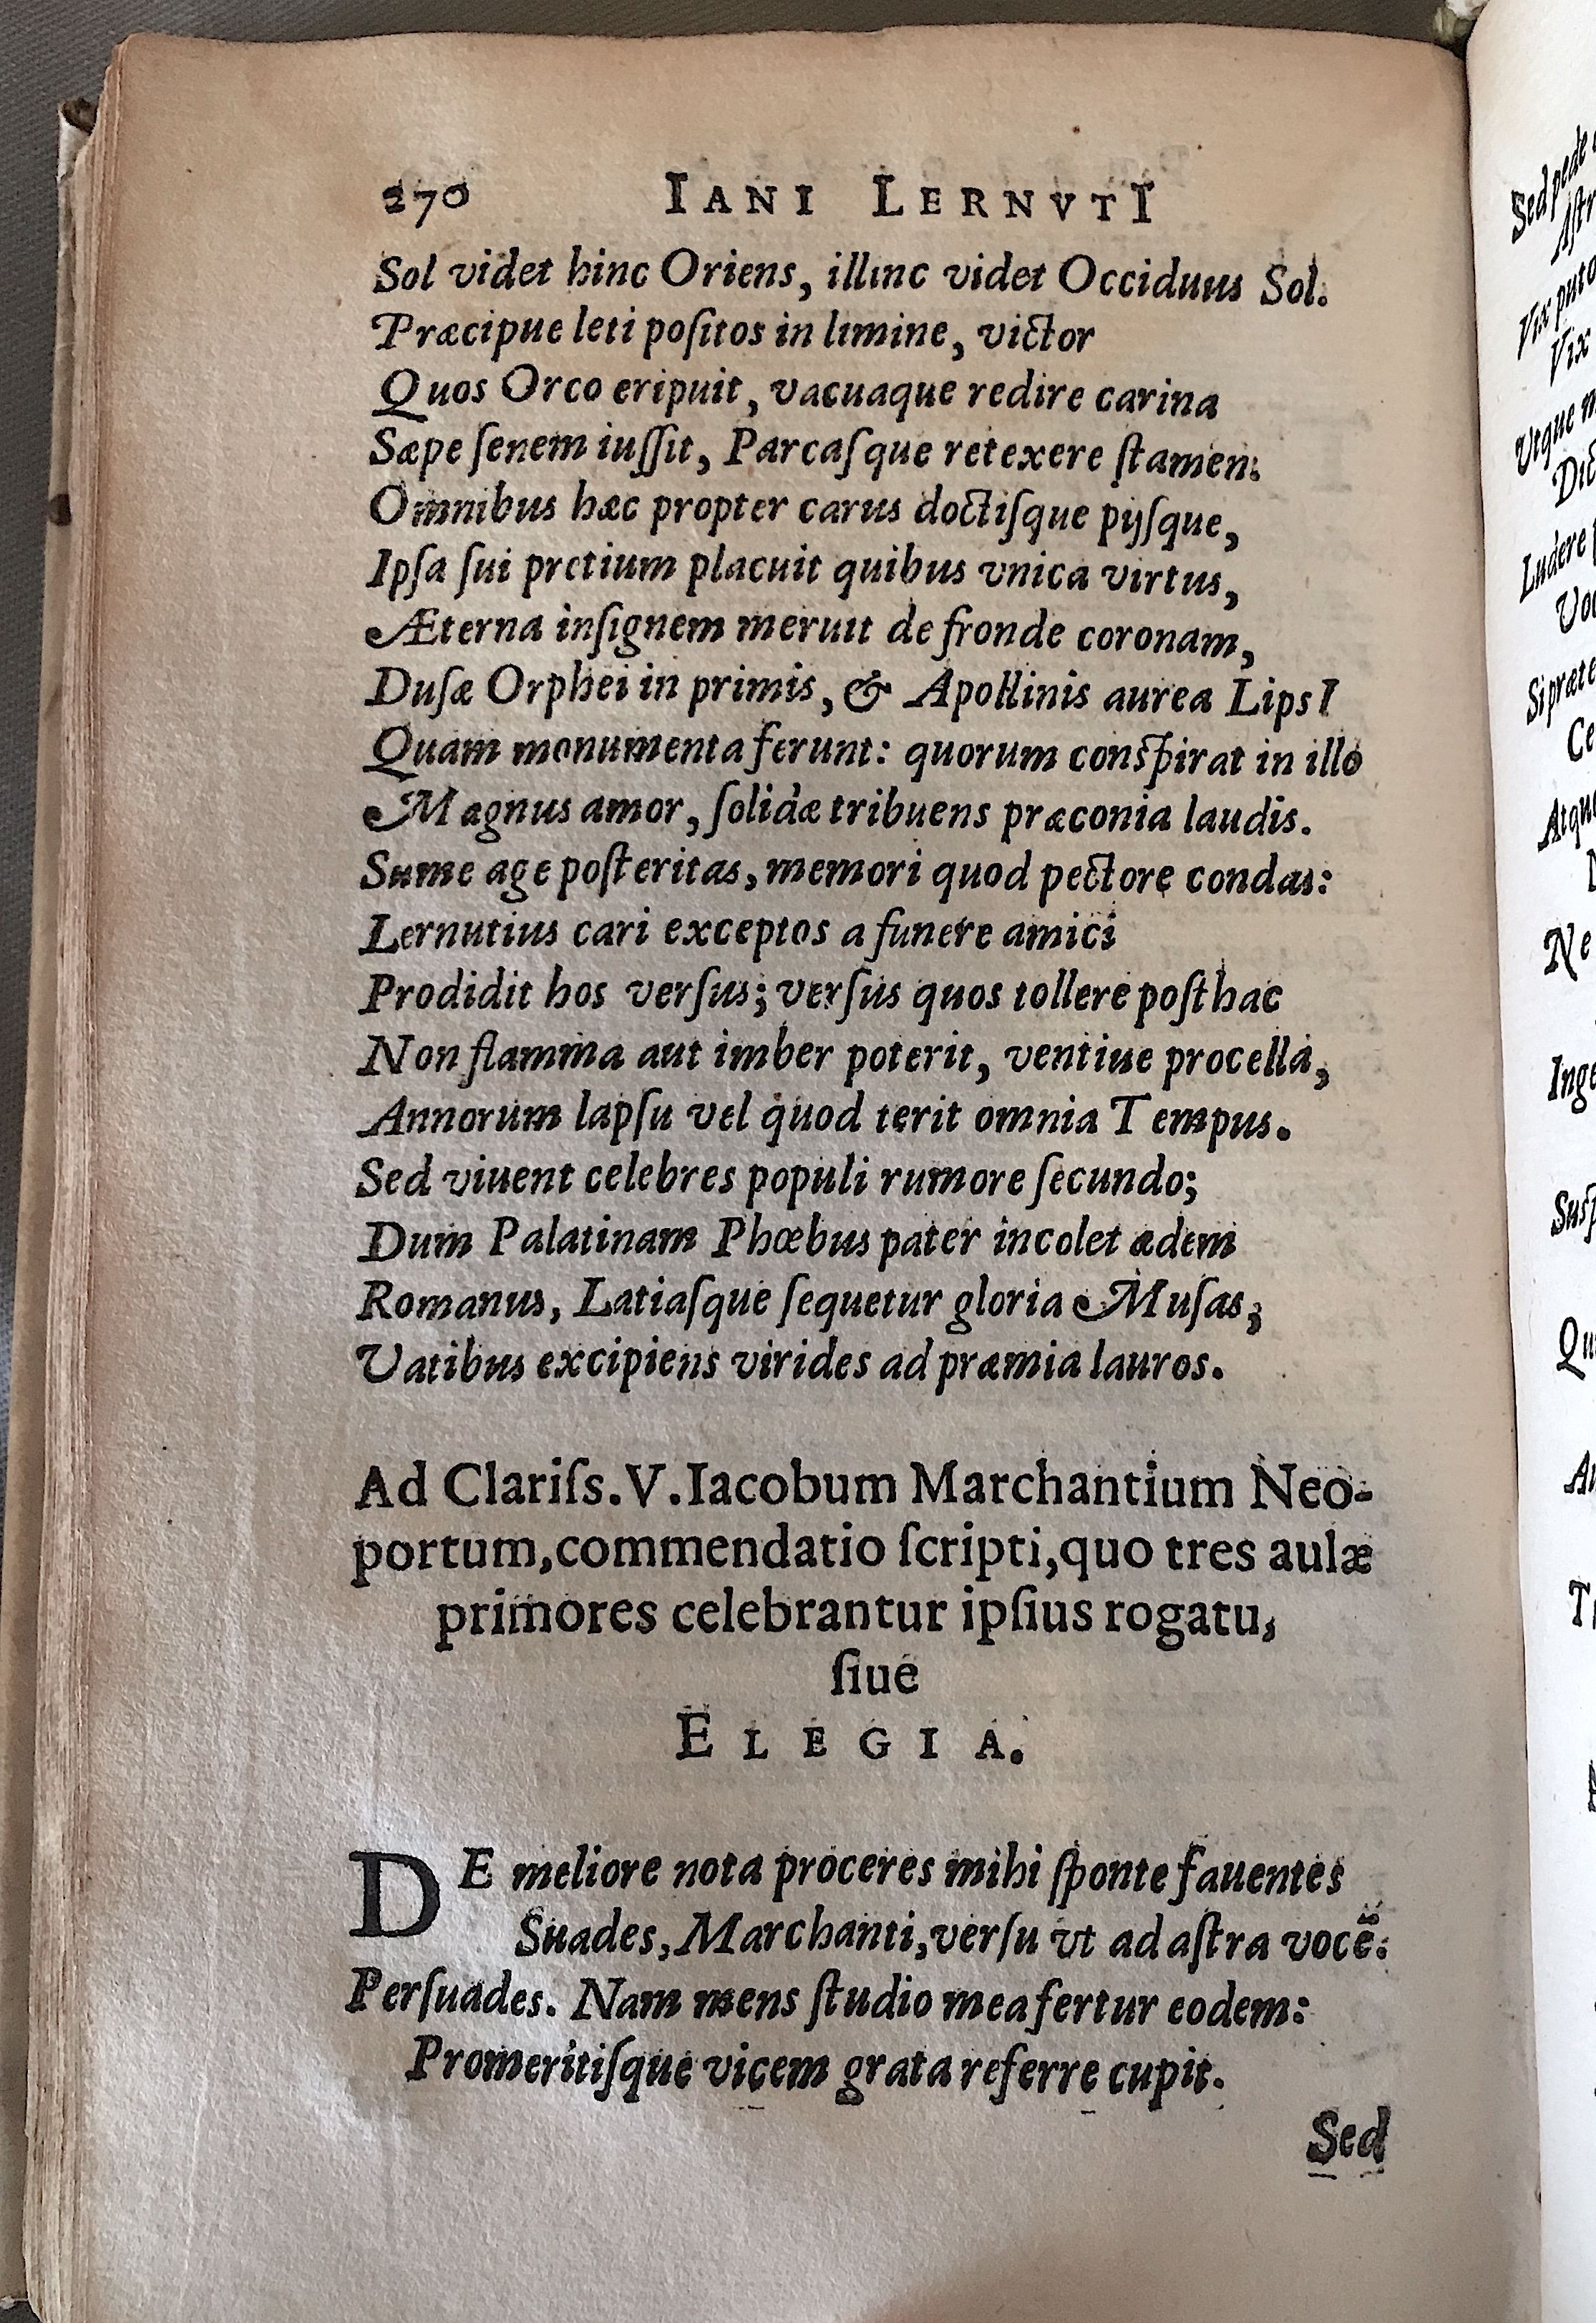 270 IANI LERNVTI
Sol videt hinc Oriens, illinc videt Occiduus Sol.
Præcipue leti poſitos in limine, victor
Quos Orco eripuit, vacuaque redire carina
Sæpe ſenem iuſſit, Parcaſque retexere ſtamen.
Omnibus hæc propter carus doctiſque pijſque,
Ipſa ſui pretium placuit quibus vnica virtus,
Æterna inſignem meruit de fronde coronam,
Duſæ Orphei in primis, & Apollinis aurea LipsI
Quam monumenta ferunt: quorum conſpirat in illo
Magnus amor, ſolidæ tribuens præconia laudis.
Sume age poſteritas, memori quod pectore condas:
Lernutius cari exceptos a funere amici
Prodidit hos verſus; verſus quos tollere poſthac
Non flamma aut imber poterit, ventiue procella,
Annorum lapſu vel quod terit omnia Tempus.
Sed viuent celebres populi rumore ſecundo;
Dum Palatinam Phœbus pater incolet ædem
Romanus, Latiaſque ſequetur gloria Muſas;
Vatibus excipiens virides ad præmia lauros.
Ad Clariſs. V. Iacobum Marchantium Neo-
portum, commendatio ſcripti, quo tres aulæ
primores celebrantur ipſius rogatu,
ſiue
ELEGIA.
DE meliore nota proceres mihi ſponte fauentes
Suades, Marchanti, verſu vt ad aſtra vocē:
Perſuades. Nam mens ſtudio mea fertur eodem:
Promeritiſque vicem grata referre cupit.
Sed